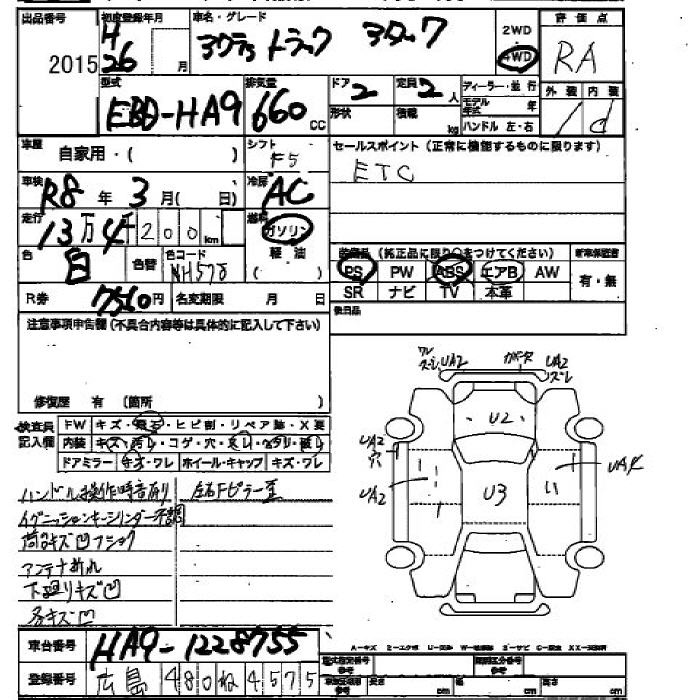 出品番号 2015
初度登録年月 H 26 月
車名・グレード アクティ トラック アタック
2WD 4WD
評価点 RA
型式 EBD-HA9
排気量 660 CC
ドア 2
形状
定員 2 人
積載 kg
ディーラー・並行
モデル年式 年
ハンドル 左・右
外装 内装
1 d
車歴 自家用・( )
シフト F5
セールスポイント (正常に機能するものに限ります)
ETC
車検 R8 年 3 月 ( 日)
冷房 AC
走行 13万4千200km
燃料 ガソリン
軽油
( )
色 白 色替
色コード NH578
装備品 (純正品に限り○をつけてください)
PS PW ABS エアB AW
SR ナビ TV 本革
新車保証書
有・無
R券 7560円 名変期限 月 日
後日品
注意事項申告欄 (不具合内容等は具体的に記入して下さい)
修復歴 有 (箇所 )
検査員記入欄
FW キズ・飛石・ヒビ割・リペア跡・X要
内装 キズ・汚レ・コゲ・穴・スレ・ヘタリ・破レ
ドアミラー キズ・ワレ ホイール・キャップ キズ・ワレ
ハンドル操作時音有り 左右Fピラー歪
イグニッションキーシリンダー不調
荷台キズ凹フショク
アンテナ折れ
下廻りキズ凹
各キズ凹
ワレ ズレ UA2
ガーニッシュ UA2 ズレ
U2
UA2 穴
UA2
U3
UA4
A-キズ
車台番号 HA9-1228755
登録番号 広島 480 ね 4575
型式指定番号 参考
類別区分番号 参考
長さ cm 幅 cm 高さ cm